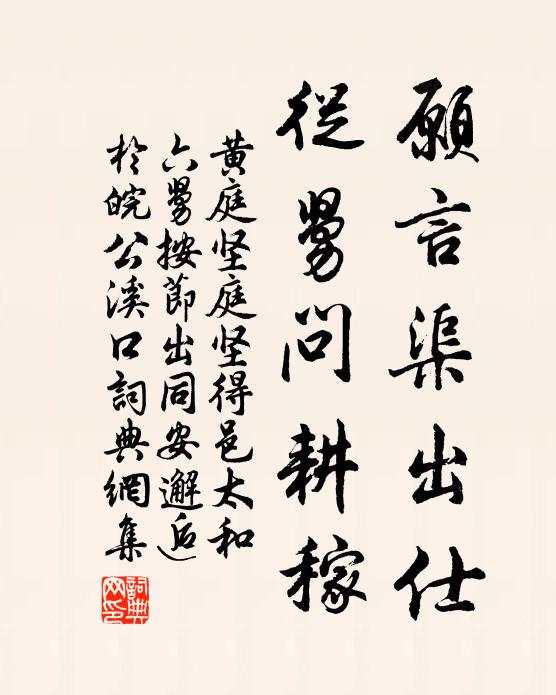 願言渠出仕
從舅問耕稼
黄庭坚庭坚得邑太和
六舅按節出同安邂逅
於皖公溪口詞典網集
詞典网印